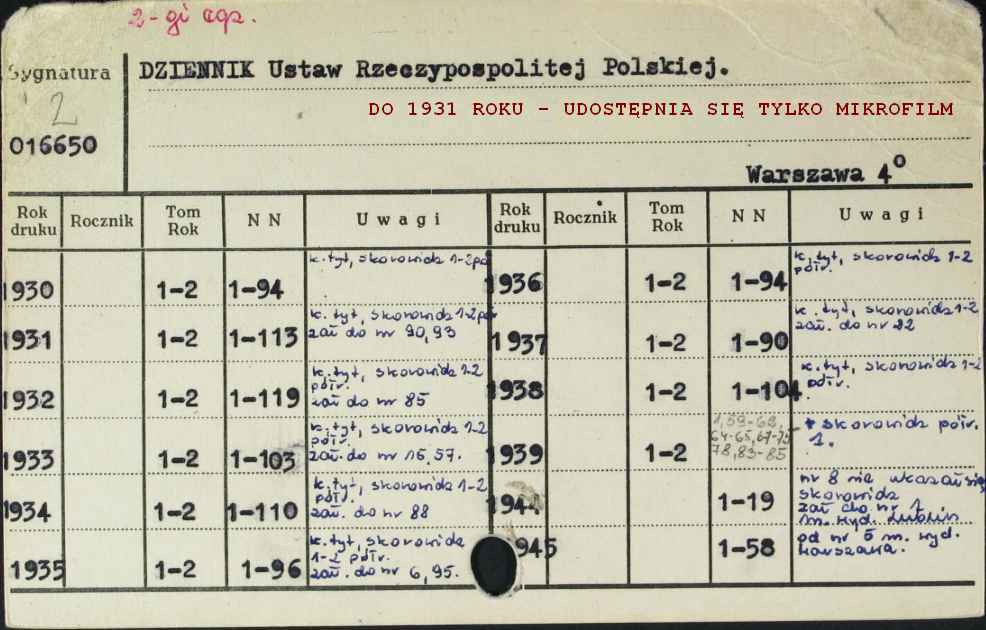 2-gi egz.
Sygnatura
2
016650
DZIENNIK Ustaw Rzeczypospolitej Polskiej.
DO 1931 ROKU - UDOSTĘPNIA SIĘ TYLKO MIKROFILM
Warszawa 4°
Rok druku Rocznik Tom Rok N N Uwagi Rok druku Rocznik Tom Rok N N Uwagi
1930 1-2 1-94 k. tyt, skorowidz 1-2 pół
1931 1-2 1-113 k. tyt, skorowidz 1-2 pół
zał do nr 90,93
1932 1-2 1-119 k. tyt, skorowidz 1-2
półr.
zał do nr 85
1933 1-2 1-103 k. tyt, skorowidz 1-2
półr.
zał. do nr 16,57.
1934 1-2 1-110 k. tyt, skorowidz 1-2
półr.
zał. do nr 88
1935 1-2 1-96 k. tyt, skorowidz
1-2 półr.
zał. do nr 6,95.
1936 1-2 1-94 k. tyt, skorowidz 1-2
półr.
1937 1-2 1-90 k. tyt, skorowidz 1-2
zał. do nr 22
1938 1-2 1-104 k. tyt, skorowidz 1-2
półr.
1939 1-2 1,59-63,
64-65,67-75
78,83-85 + skorowidz półr.
1.
1944 1-19 nr 8 nie ukazał się
skorowidz
zał do nr 1
m. wyd. Lublin
1945 1-58 od nr 5 m. wyd.
Warszawa.